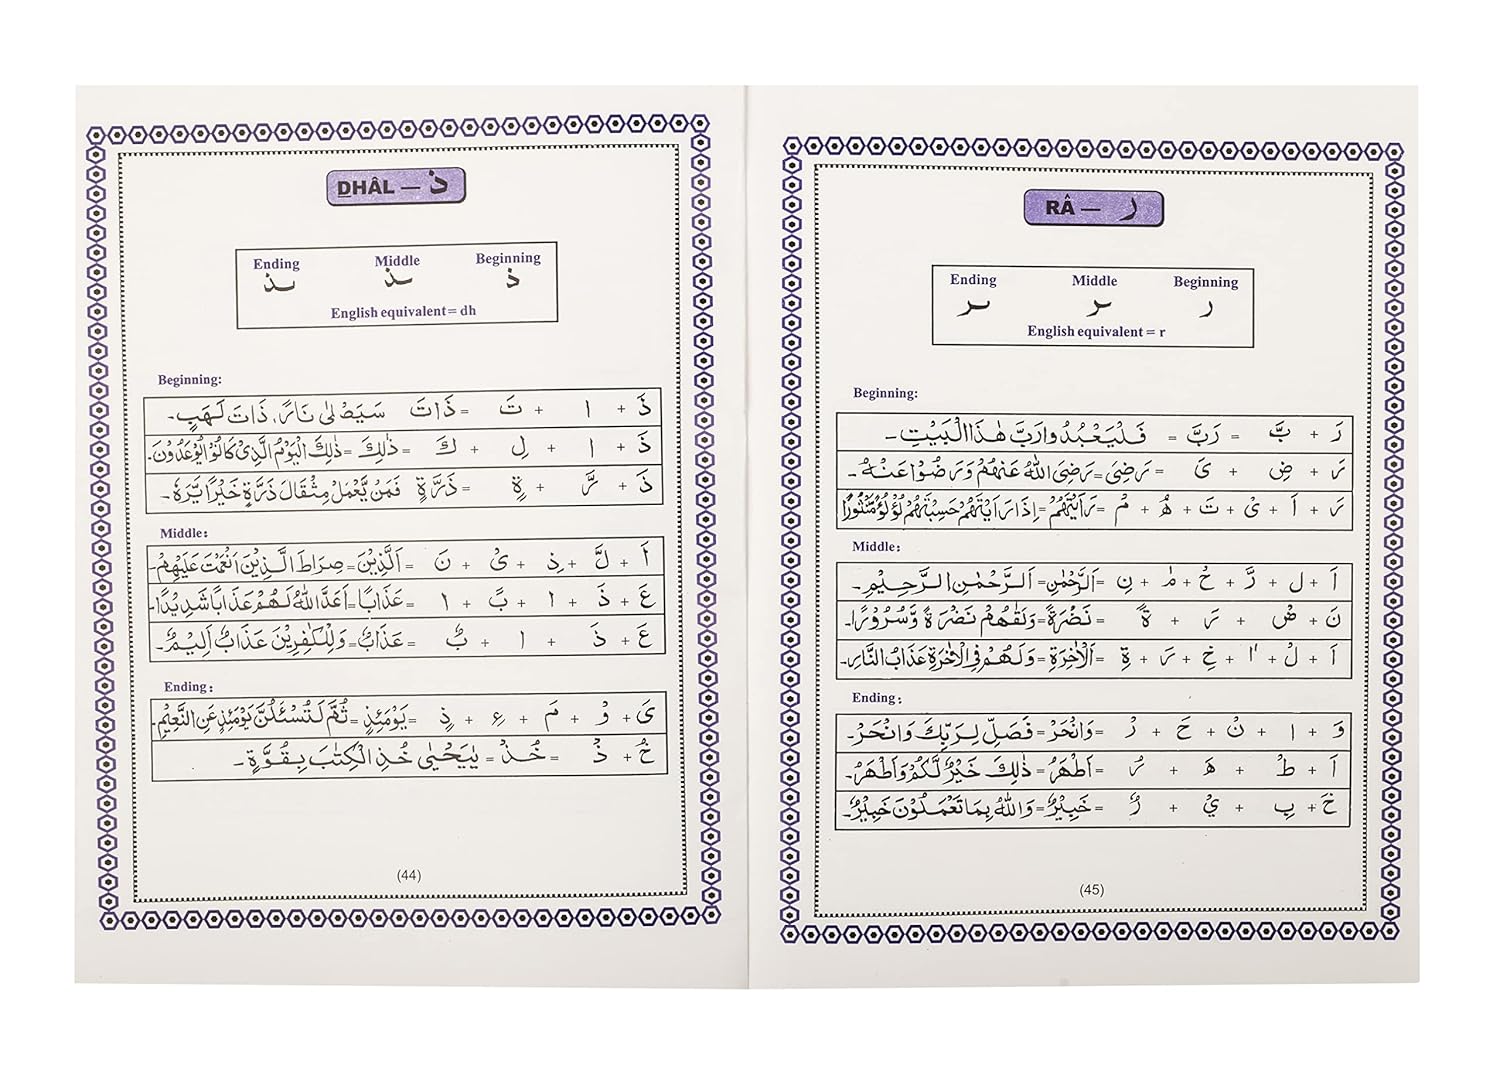 DHÂL — ذ
Ending Middle Beginning
ـذ ـذ ذ
English equivalent = dh
Beginning:
ذَ + ا + تَ = ذَاتَ سَيَصْلٰى نَارًا ذَاتَ لَهَبٍ۔
ذَ + ا + لِ + كَ = ذٰلِكَ = ذٰلِكَ الْيَوْمُ الَّذِىْ كَانُوْا يُوْعَدُوْنَ۔
ذَ + رَّ + ةٍ = ذَرَّةٍ فَمَنْ يَّعْمَلْ مِثْقَالَ ذَرَّةٍ خَيْرًا يَّرَهٗ۔
Middle:
اَ + لَّ + ذِ + ىْ + نَ = اَلَّذِيْنَ = صِرَاطَ الَّذِيْنَ اَنْعَمْتَ عَلَيْهِمْ۔
عَ + ذَ + ا + بً + ا = عَذَابًا = اَعَدَّ اللّٰهُ لَهُمْ عَذَابًا شَدِيْدًا۔
عَ + ذَ + ا + بٌ = عَذَابٌ = وَلِلْكٰفِرِيْنَ عَذَابٌ اَلِيْمٌ۔
Ending:
ىَ + وْ + مَ + ءِ + ذٍ = يَوْمَئِذٍ = ثُمَّ لَتُسْئَلُنَّ يَوْمَئِذٍ عَنِ النَّعِيْمِ۔
خُ + ذْ = خُذْ = يٰيَحْيٰى خُذِ الْكِتٰبَ بِقُوَّةٍ۔
(44)
RÂ — ر
Ending Middle Beginning
ـر ـر ر
English equivalent = r
Beginning:
رَ + بَّ = رَبَّ = فَلْيَعْبُدُوا رَبَّ هٰذَا الْبَيْتِ۔
رَ + ضِ + ىَ = رَضِىَ = رَضِىَ اللّٰهُ عَنْهُمْ وَرَضُوْا عَنْهُ۔
رَ + اَ + ىْ + تَ + هُ + مْ = رَاَيْتَهُمْ = اِذَا رَاَيْتَهُمْ حَسِبْتَهُمْ لُؤْلُؤًا مَّنْثُوْرًا
Middle:
اَ + ل + رَّ + حْ + مٰ + نِ = اَلرَّحْمٰنِ = اَلرَّحْمٰنِ الرَّحِيْمِ۔
نَ + ضْ + رَ + ةً = نَضْرَةً = وَلَقّٰهُمْ نَضْرَةً وَّسُرُوْرًا۔
اَ + لْ + اٰ + خِ + رَ + ةِ = اَلْاٰخِرَةِ = وَلَهُمْ فِى الْاٰخِرَةِ عَذَابُ النَّارِ۔
Ending:
وَ + ا + نْ + حَ + رْ = وَانْحَرْ = فَصَلِّ لِرَبِّكَ وَانْحَرْ۔
اَ + طْ + هَ + رُ = اَطْهَرُ = ذٰلِكَ خَيْرٌ لَّكُمْ وَاَطْهَرُ۔
خَ + بِ + يْ + رٌ = خَبِيْرٌ = وَاللّٰهُ بِمَا تَعْمَلُوْنَ خَبِيْرٌ۔
(45)